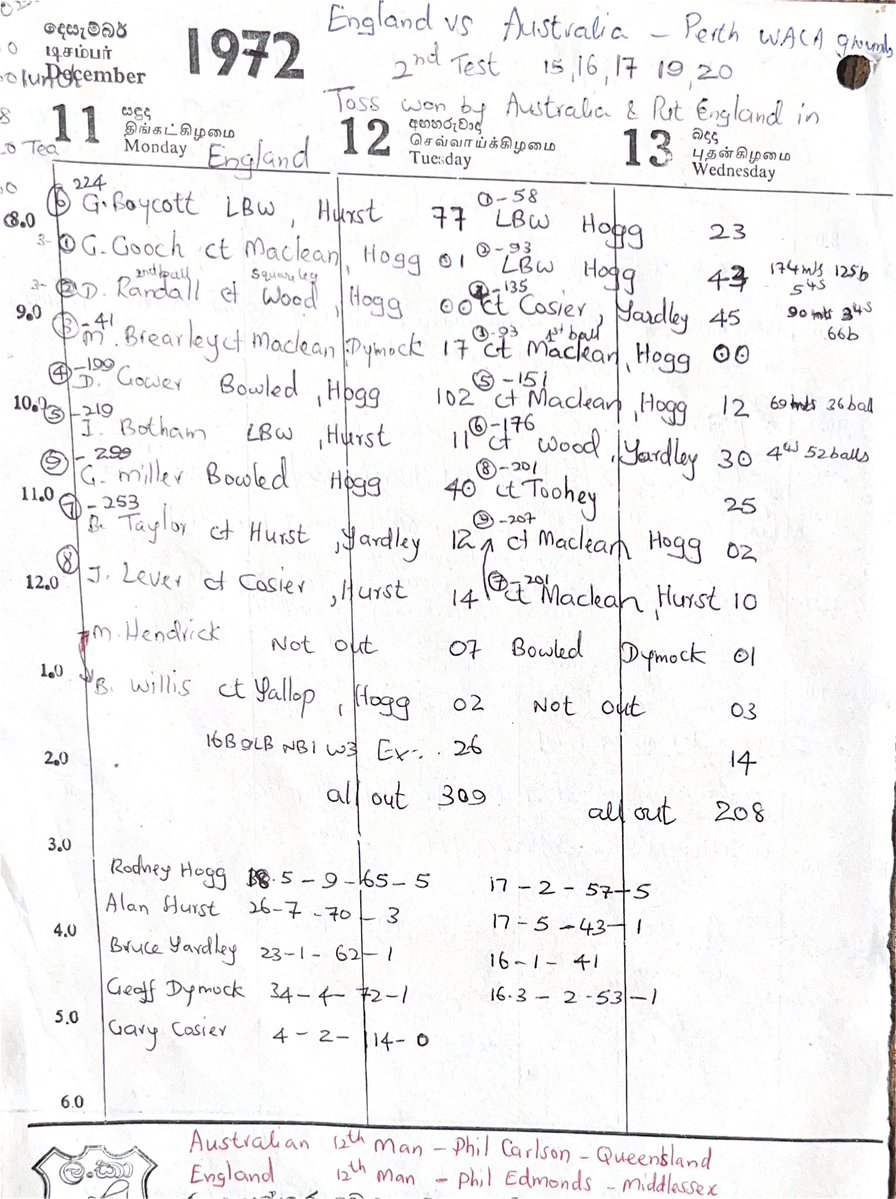 England vs Australia - Perth WACA grounds
2nd Test 15,16,17 19,20
Toss won by Australia & Put England in
දෙසැම්බර්
டிசம்பர்
December
1972
lunch
Tea
11 සඳුදු திங்கட்கிழமை Monday
12 අඟහරුවාදා செவ்வாய்க்கிழமை Tuesday
13 බදාදා புதன்கிழமை Wednesday
England
8.0
⑥ 224 G. Boycott LBW, Hurst 77 ①-58 LBW Hogg 23
3- ① G. Gooch ct Maclean, Hogg 01 ②-93 LBW Hogg 43 174 mts 125b 5 4s
3- ② D. Randall 2nd ball ct Wood Square leg, Hogg 00 ④-135 ct Cosier, Yardley 45 90 mts 3 4s 66b
9.0
③-41 M. Brearley ct Maclean, Dymock 17 ③-93 1st ball ct Maclean, Hogg 00
④-199 D. Gower Bowled, Hogg 102 ⑤-151 ct Maclean, Hogg 12 69 mts 36 ball
10.0
⑤-219 I. Botham LBW, Hurst 11 ⑥-176 ct Wood, Yardley 30 4 4s 52 balls
⑨-299 G. miller Bowled Hogg 40 ⑧-201 ct Toohey 25
11.0
⑦-253 B. Taylor ct Hurst, Yardley 12 ⑨-207 ct Maclean Hogg 02
⑧ J. Lever ct Cosier, Hurst 14 ⑦-201 ct Maclean, Hurst 10
12.0
M. Hendrick Not out 07 Bowled Dymock 01
1.0
B. Willis ct Yallop, Hogg 02 Not out 03
16B 9LB NB1 W3 Ex.. 26 14
2.0
all out 309 all out 208
3.0
Rodney Hogg 18.5 - 9 - 65 - 5 17 - 2 - 57 - 5
Alan Hurst 26 - 7 - 70 - 3 17 - 5 - 43 - 1
4.0
Bruce Yardley 23 - 1 - 62 - 1 16 - 1 - 41
Geoff Dymock 34 - 4 - 72 - 1 16.3 - 2 - 53 - 1
5.0
Gary Cosier 4 - 2 - 14 - 0
6.0
Australian 12th Man - Phil Carlson - Queensland
England 12th Man - Phil Edmonds - Middlessex